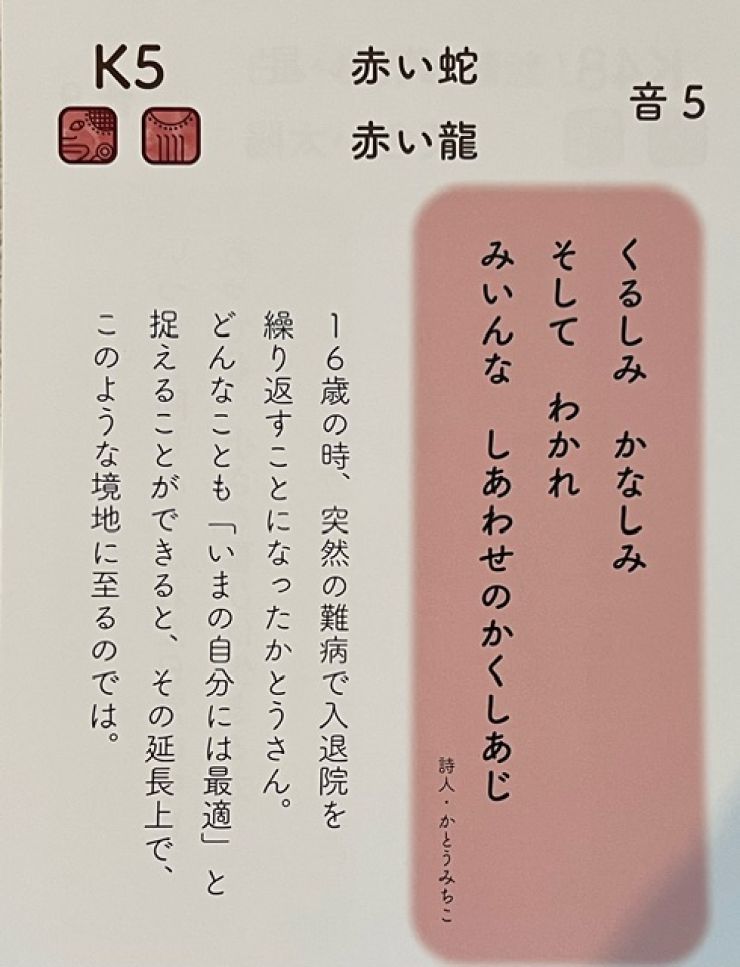 K5
赤い蛇
赤い龍
音5
くるしみ　かなしみ
そして　わかれ
みいんな　しあわせのかくしあじ
詩人・かとうみちこ
16歳の時、突然の難病で入退院を
繰り返すことになったかとうさん。
どんなことも「いまの自分には最適」と
捉えることができると、その延長上で、
このような境地に至るのでは。